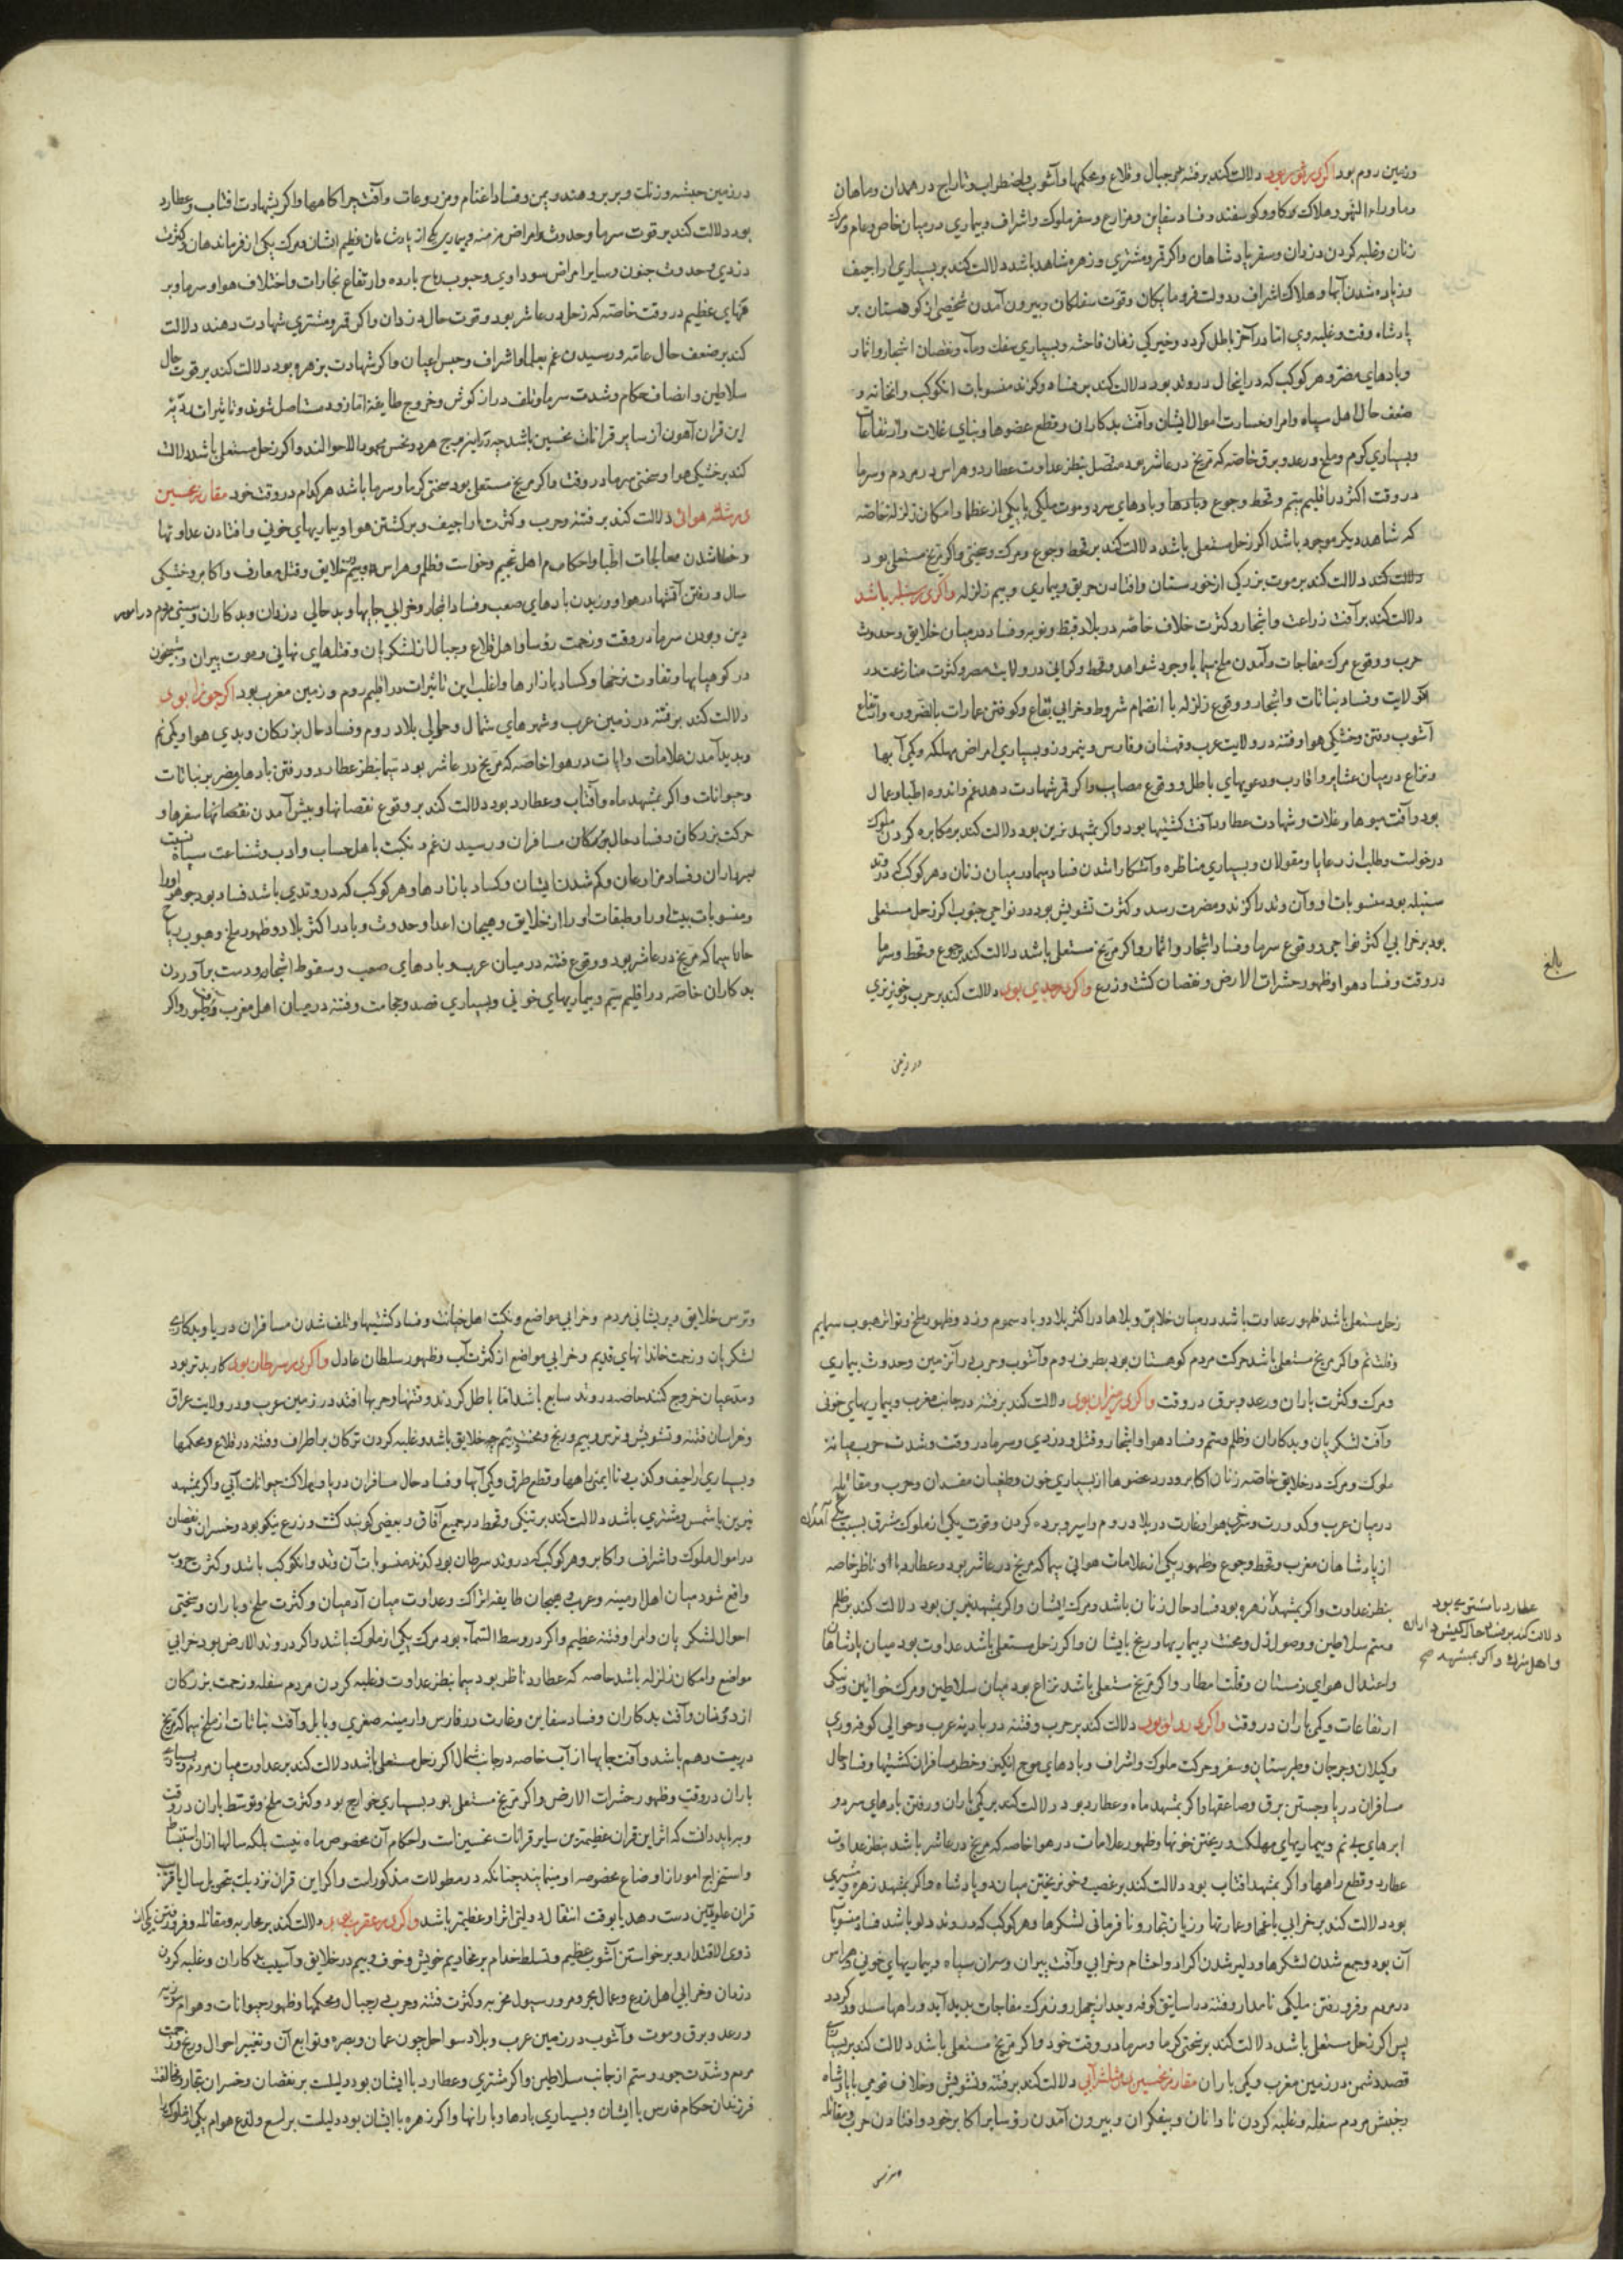 وزمین روم بود اکر در ثور بود دلالت کند بر فتنه در جبال و قلاع و محکمها و آشوب و اضطراب و تاراج در همدان و ماهان
و ماوراء النهر و هلاک کاو و کوسفند و فساد سفاین و مزارع و سفر ملوک و اشراف و بیماری در میان خاص و عام و مرک
زنان و غلبه کردن دزدان و سفر پادشاهان و اکر قمر و مشتری و زهره شاهد باشد دلالت کند بر بسیاری اراجیف
و زیاده شدن آبها و هلاک اشراف و دولت فرومایکان و قوت سفلکان و بیرون آمدن شخصی از کوهستان بر
پادشاه وقت و غلبه وی اما در آخر باطل کردد و خیرکی زنان فاحشه و بسیاری سفک دماء و نقصان اشجار و اثمار
و بادهای مضر و هر کوکب که در این حال در وتد بود دلالت کند بر فساد و کزند منسوبات آن کوکب و آن خانه و
ضعف حال اهل سپاه و امرا و خسارت اموال ایشان و آفت بدکاران و قطع عضوها و تباهی غلات و ارتفاعات
و بسیاری کرم و ملخ و رعد و برق خاصه که مریخ در عاشر بود متصل بنظر عداوت عطارد و هراس در مردم و سرما
در وقت اکثر در اقلیم پنجم و قحط و جوع و وباها و بادهای سرد و موت ملکی یا یکی از عظما و امکان زلزله خاصه
که شاهد دیکر موجود باشد اکر زحل مستعلی باشد دلالت کند بر قحط و جوع و مرک و سختی و اکر مریخ مستعلی بود
دلالت کند دلالت کند بر موت بزرکی از خورستان و افتادن حریق و بیماری و بیم زلزله و اکر در سنبله باشد
دلالت کند بر آفت زراعت و اشجار و کثرت خلاف خاصه در بلاد قبط و نوبه و فساد در میان خلایق و حدوث
حرب و وقوع مرک مفاجات و آمدن ملخ سیما با وجود شواهد و قحط و کرانی در ولایت مصر و کثرت منازعت در
آن ولایت و فساد نباتات و اشجار و وقوع زلزله با انضمام شروط و خرابی بقاع و کوفتن عمارات بالضروره و ارتفاع
آشوب و فتن و خشکی هوا و فتنه در ولایت عرب و قهستان و فارس و نیمروز و بسیاری امراض مهلکه و کمی آبها
و نزاع در میان عشایر و اقارب و دعویهای باطل و وقوع مصایب و اکر قمر شهادت دهد غم و اندوه اطبا و عمال
بود و آفت میوها و غلات و شهادت عطارد آفت کشتیها بود و اکر بمشهد نیرین بود دلالت کند بر مکابره کردن ملوک
درخواست و طلب از رعایا و مقولان و بسیاری مناظره و آشکارا شدن فساد سیما در میان زنان و هر کوکب که در وتد
سنبله بود منسوبات او و آن وتد را کزند و مضرت رسد و کثرت تشویش بود در نواحی جنوب اکر زحل مستعلی
بود بر خرابی اکثر نواحی و وقوع سرما و فساد اشجار و اثمار و اکر مریخ مستعلی باشد دلالت کند بر جوع و قحط و سرما
در وقت و فساد هوا و ظهور حشرات الارض و نقصان کشت و زرع و اکر در جدی بود دلالت کند بر حرب و خونریزی
بلغ
در زمین
در زمین حبشه و زنک و بربر و هند و یمن و فساد اغنام و مزروعات و آفت چراکاهها و اکر بشهادت افتاب و عطارد
بود دلالت کند بر قوت سرما و حدوث امراض مزمنه و بیماری یکی از پادشاهان عظیم الشان و مرک یکی از فرماندهان و کثرت
دزدی و حدوث جنون و سایر امراض سوداوی و هبوب ریاح بارده و ارتفاع بخارات و اختلاف هوا و سرما و بر
فهای عظیم در وقت خاصه که زحل در عاشر بود و قوت حال دزدان و اکر قمر و مشتری شهادت دهند دلالت
کند بر ضعف حال عامه و رسیدن غم بعلما و اشراف و حبس اعیان و اکر شهادت بزهره بود دلالت کند بر قوت حال
سلاطین و انصاف حکام و شدت سرما و تلف دراز کوش و خروج طایفه اما زود مستاصل شوند و تاثیرات ردیه
این قران آهون از سایر قرانات نحسین باشد چه در این برج هر دو نحس محمود الاحوالند و اکر زحل مستعلی باشد دلالت
کند بر خشکی هوا و سختی سرما در وقت و اکر مریخ مستعلی بود سختی کرما و سرما باشد هر کدام در وقت خود مقارنه نحسین
در مثلثه هوائی دلالت کند بر فتنه و حرب و کثرت اراجیف و برکشتن هوا و بیماریهای خونی و افتادن عداوتها
و خطا شدن معالجات اطبا و احکام اهل تنجیم و خواست و ظلم و هراس و بیم خلایق و قتل معارف و اکابر و خشکی
سال و رفتن آفتها در هوا و وزیدن بادهای صعب و فساد اشجار و خرابی جایها و بدحالی دزدان و بدکاران و سستی مردم در امور
دین و بودن سرما در وقت و زحمت رؤسا و اهل قلاع و جبال از لشکریان و قتلهای نهانی و موت پیران و شبیخون
در کوهپایها و تفاوت نرخها و کساد بازارها و اغلب این تاثیرات در اقلیم روم و زمین مغرب بود اکر در جوزا بود
دلالت کند بر فتنه در زمین عرب و شهرهای شمال و حوالی بلاد روم و فساد حال بزرکان و بدی هوا و کمی نم
و پدید آمدن علامات و ایات در هوا خاصه که مریخ در عاشر بود سیما بنظر عطارد و رفتن بادهای مضر بر نباتات
و حیوانات و اکر بمشهد ماه و آفتاب و عطارد بود دلالت کند بر وقوع نقصانها و پیش آمدن نقصانها سفرها و
حرکت بزرکان و فساد حال بزرکان مسافران و رسیدن غم و نکبت باهل حساب و ادب و شناعت نسبت سپاه
سرداران و فساد مزارعان و کم شدن ایشان و کساد بازارها و هر کوکب که در وتدی باشد فساد بود جوهر او را
و منسوبات بیت او را و طبقات او را از خلایق و هیجان اعدا و حدوث وبا در اکثر بلاد و ظهور ملخ و هبوب ریاح
حاره سیما که مریخ در عاشر بود و وقوع فتنه در میان عرب و بادهای صعب و سقوط اشجار و دست برآوردن
بدکاران خاصه در اقلیم سیم و بیماریهای خونی و بسیاری فصد و حجامت و فتنه در میان اهل مغرب و طیور و اکر
زحل مستعلی باشد ظهور عداوت باشد در میان خلایق و بلاها در اکثر بلاد و باد سموم وزد و ظهور ملخ و تواتر هبوب سمایم
و قلت نم و اکر مریخ مستعلی باشد حرکت مردم کوهستان بود بطرف روم و آشوب و حرب در آن زمین و حدوث بیماری
و مرک و کثرت باران و رعد و برق در وقت و اکر در میزان بود دلالت کند بر فتنه در جانب مغرب و بیماریهای خونی
و آفت لشکریان و بدکاران و ظلم و ستم و فساد هوا و اشجار و قتل و دزدی و سرما در وقت و شدت حرب میانه
ملوک و مرک در خلایق خاصه زنان اکابر و درد عضوها از بسیاری خون و طغیان مفسدان و حرب و مقاتله
در میان عرب و کدورت و سرخی هوا و غارت در بلاد روم و اسیر و برده کردن و فوت یکی از ملوک مشرق بسبب تنکی آمدن
از پادشاهان مغرب و قحط و جوع و ظهور یکی از علامات هوائی سیما که مریخ در عاشر بود و عطارد باو ناظر خاصه
بنظر عداوت و اکر بمشهد زهره بود فساد حال زنان باشد و مرک ایشان و اکر بمشهد نیرین بود دلالت کند بر ظلم
و ستم سلاطین و وصول ذل و محنت و بیماریها و رنج بایشان و اکر زحل مستعلی باشد عداوت بود میان پادشاهان
و اعتدال هوای زمستان و قلت امطار و اکر مریخ مستعلی باشد نزاع بود میان سلاطین و مرک خواتین و نیکی
ارتفاعات و کمی باران در وقت و اکر در دلو بود دلالت کند بر حرب و فتنه در بادیه عرب و حوالی کوفه و ری
و کیلان و جرجان و طبرستان و سفر و حرکت ملوک و اشراف و بادهای موج انکیز و خطر مسافران کشتیها و فساد حال
مسافران دریا و جستن برق و صاعقها و اکر بمشهد ماه و عطارد بود دلالت کند بر کمی باران و رفتن بادهای سرد و
ابرهای بی نم و بیماریهای مهلک و ریختن خونها و ظهور علامات در هوا خاصه که مریخ در عاشر باشد بنظر عداوت
عطارد و قطع راهها و اکر بمشهد افتاب بود دلالت کند بر غصب و خونریختن میان دو پادشاه و اکر بمشهد زهره و مشتری
بود دلالت کند بر خرابی باغها و عمارتها و زیان تجار و نافرمانی لشکرها و هر کوکب که در وتد دلو باشد فساد منسوبات
آن بود و جمع شدن لشکرها و دلیر شدن اکراد و احشام و خرابی و آفت پیران و سران سپاه و بیماریهای خونی و هراس
در مردم و فرو رفتن ملکی نامدار و فتنه در رساتیق کوفه و بعد از چهل روز مرک مفاجات پدید آید و راهها مسدود کردد
پس اکر زحل مستعلی باشد دلالت کند بر سختی کرما و سرما در وقت خود و اکر مریخ مستعلی باشد دلالت کند بر بسیاری
قصد دشمن در زمین مغرب و کمی باران مقارنه نحسین در مثلثه آبی دلالت کند بر فتنه و تشویش و خلاف قومی با پادشاه
و جنبش مردم سفله و غلبه کردن نادانان و بیفکران و بیرون آمدن رؤسا بر اکابر خود و افتادن حرب و مقاتله
عطارد یا مشتری بود
دلالت کند بر فساد حال کیش داران
و اهل شرک و اکر بمشهد صح
و ترس
و ترس خلایق و پریشانی مردم و خرابی مواضع و نکبت اهل خیانت و فساد کشتیها و تلف شدن مسافران دریا و بدکاری
لشکریان و زحمت خاندانهای قدیم و خرابی مواضع از کثرت آب و ظهور سلطان عادل و اکر در سرطان بود کار بدتر بود
و متدعیان خروج کنند خاصه در وتد سابع باشد اما باطل کردند و فتنها و حربها افتد در زمین عرب و در ولایت عراق
و خراسان فتنه و تشویش و ترس و بیم و رنج و محنت جمیع خلایق باشد و غلبه کردن ترکان بر اطراف و فتنه در قلاع و محکمها
و بسیاری اراجیف و کذب و ناایمنی راهها و قطع طرق و کمی آبها و فساد حال مسافران دریا و هلاک حیوانات آبی و اکر بمشهد
نیرین یا شمس و مشتری باشد دلالت کند بر تنکی و قحط در جمیع آفاق و بعضی کویند کشت و زرع نیکو بود و خسران و نقصان
در اموال ملوک و اشراف و اکابر و هر کوکب که در وتد سرطان بود کزند منسوبات آن وتد و آن کوکب باشد و کثرت حروب
واقع شود میان اهل ارمینه و عرب و هیجان طایفه اتراک و عداوت میان آدمیان و کثرت ملخ و باران و سختی
احوال لشکریان و امرا و فتنه عظیم و اکر در وسط السماء بود مرک یکی از ملوک باشد و اکر در وتد الارض بود خرابی
مواضع و امکان زلزله باشد خاصه که عطارد ناظر بود سیما بنظر عداوت و غلبه کردن مردم سفله و زحمت بزرکان
از دونان و آفت بدکاران و فساد سفاین و غارت در فارس و ارمینه صغری و بابل و آفت نباتات از ملخ سیما که مریخ
در بیت دهم باشد و آفت جایها از آب خاصه در جانب شمال اکر زحل مستعلی باشد دلالت کند بر عداوت میان مردم و بسیاری
باران در وقت و ظهور حشرات الارض و اکر مریخ مستعلی بود بسیاری خوارج بود و کثرت ملخ و توسط باران در وقت
و بباید دانست که اثر این قران عظیمترین سایر قرانات نحسین است و احکام آن مخصوص ماه نیست بلکه سالها از آن استنباط
و استخراج امور از اوضاع مخصوصه او مینمایند چنانکه در مطولات مذکور است و اکر این قران نزدیک بتحویل سال یا قرب
قران علویین دست دهد یا بوقت انتقال دولتی اثر او عظیمتر باشد و اکر در عقرب بود دلالت کند بر محاربه و مقاتله و فرو رفتن یکی از
ذوی الاقتدار و برخواستن آشوب عظیم و تسلط خدام بر مخادیم خویش و خوف و بیم در خلایق و آسیب بدکاران و غلبه کردن
دزدان و خرابی اهل زرع و عمال بحر و مرور سیول مخربه و کثرت فتنه و حرب در جبال و محکمها و ظهور حیوانات و هوام موذیه
و رعد و برق و موت و آشوب در زمین عرب و بلاد سواحل چون عمان و بصره و توابع آن و تغییر احوال و رنج و زحمت
مردم و شدت جور و ستم از جانب سلاطین و اکر مشتری و عطارد با ایشان بود دلیلست بر نقصان و خسران تجار و مخالفت
فرزندان حکام فارس با ایشان و بسیاری بادها و بارانها و اکر زهره با ایشان بود دلیلست بر لسع و لدغ هوام یکی از ملوک را